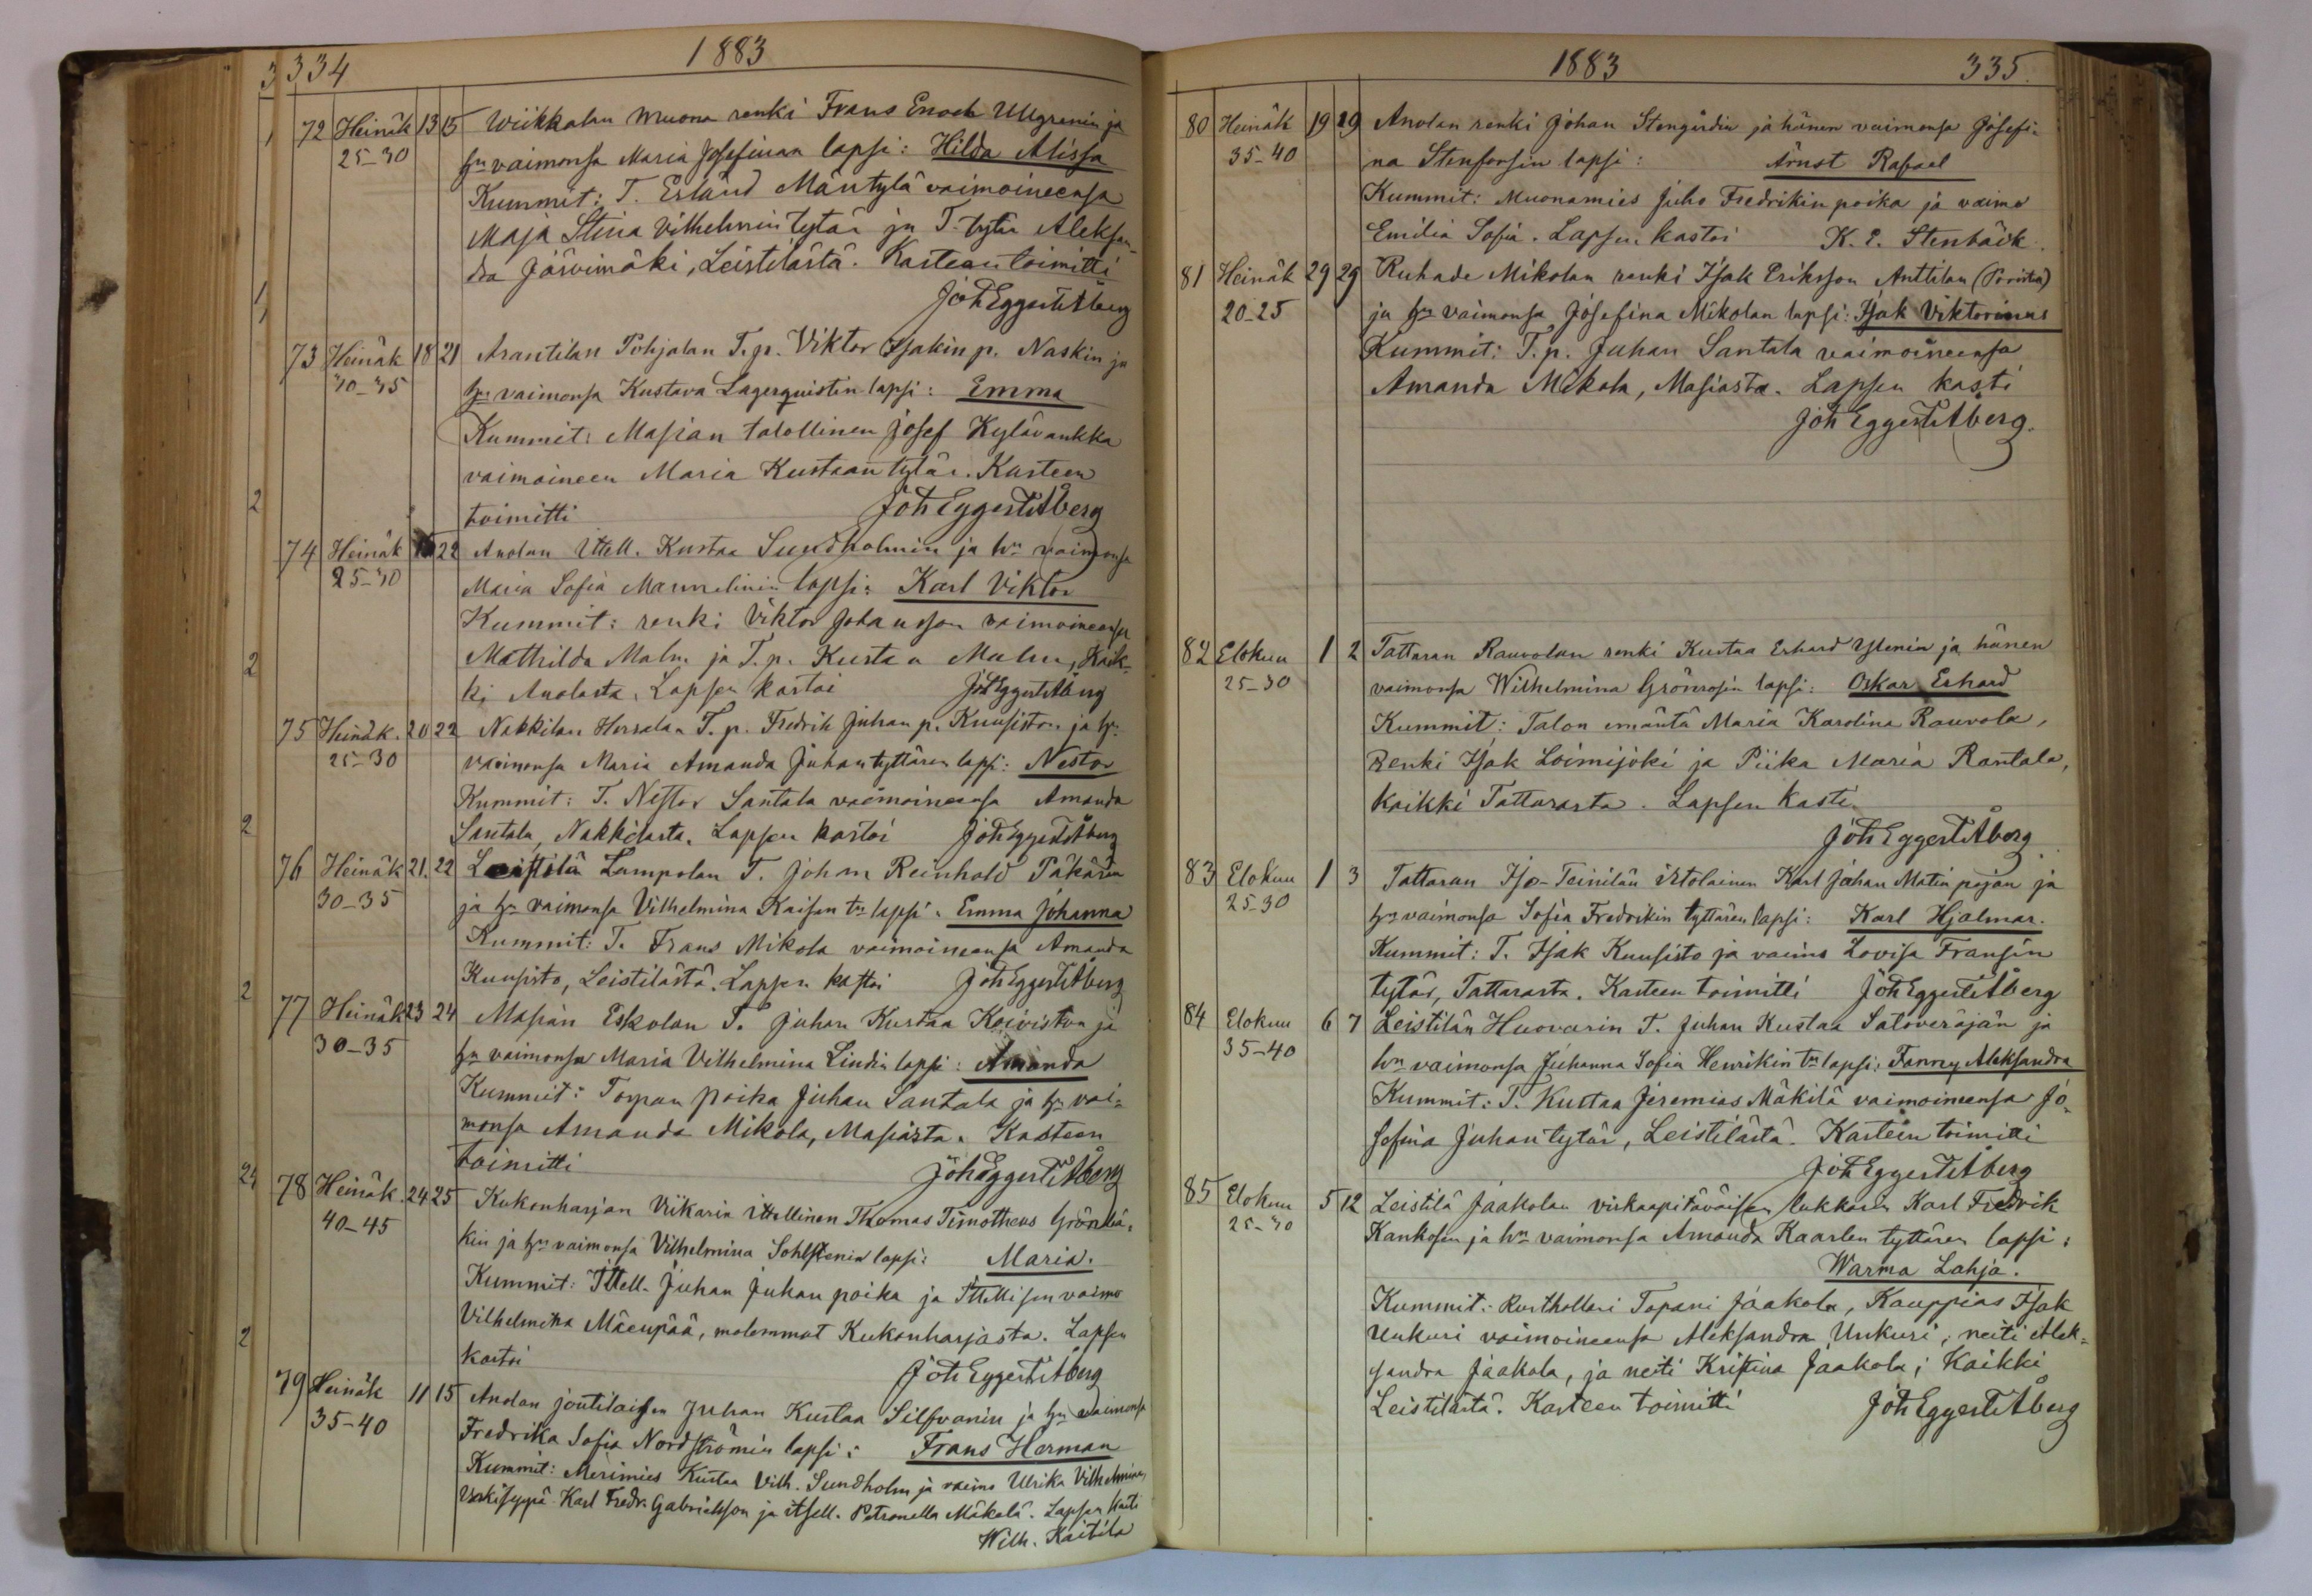 334 1883
72 Heinäk 13 15 Wiikkalan muona renki Frans Enoch Ullgrenin ja
25-30 hn vaimonsa Maria Josefinan lapsi: Hilda Alissa
Kummit: T. Erland Mäntylä vaimoineensa
Maja Stina Vilhelmin tytär ja T. tytär Aleksan-
dra Järvimäki, Leistilästä. Kasteen toimitti
Joh Eggert Åberg
73 Heinäk 18 21 Arantilan Pohjalan T.p. Viktor Isakin p. Naskin ja
30-35 hn vaimonsa Kustava Lagerquistin lapsi: Emma
Kummit: Masian talollinen Josef Kylävankka
vaimoineen Maria Kustaan tytär. Kasteen
toimitti Joh Eggert Åberg
74 Heinäk 22 Anolan Ittell. Kustaa Sundholmin ja hn vaimonsa
25-30 Maria Sofia Mannelinin lapsi: Karl Viktor
Kummit: renki Viktor Johansson vaimoineensa
Mathilda Malm ja T.p. Kustaa Malm, Kaik-
ki Anolasta. Lapsen kastoi Joh Eggert Åberg
75 Heinäk. 20 22 Nakkilan T.p. Fredrik Juhan p. Kuusiston ja hn
25-30 vaimonsa Maria Amanda Juhan tyttären lapsi: Nestor
Kummit: T. Nestor Santala vaimoineensa Amanda
Santala, Nakkilasta. Lapsen kastoi Joh Eggert Åberg
76 Heinäk 21. 22 Leistilä Lampolan T. Johan Reinhold Päkärin
30-35 ja hn vaimonsa Vilhelmina Kaisan tn lapsi: Emma Johanna
Kummit: T. Frans Mikola vaimoineensa Amanda
Kuusisto, Leistilästä. Lapsen kastoi Joh Eggert Åberg
77 Heinäk 23 24 Masian Eskolan T. Juhan Kustaa Koiviston ja
30-35 hn vaimonsa Maria Vilhelmina Lindin lapsi: Amanda
Kummit: Torpan poika Juhan Santala ja hn vai-
monsa Amanda Mikola, Masiasta. Kasteen
toimitti Joh Eggert Åberg
78 Heinäk. 24 25 Kukonharjan Viikarin Ittellinen Thomas Timotheus Grönbä-
40-45 kin ja hn vaimonsa Vilhelmina Sohlstenin lapsi: Maria.
Kummit: Ittell. Juhan Juhan poika ja Ittellisen vaimo
Vilhelmina Mäenpää, molemmat Kukonharjasta. Lapsen
kastoi Joh Eggert Åberg
79 Heinäk 11 15 Anolan joutilaisen Juhan Kustaa Silfvanin ja hn vaimonsa
35-40 Fredrika Sofia Nordströmin lapsi: Frans Herman
Kummit: Merimies Kustaa Vilh. Sundholm ja vaimo Ulrika Vilhelmina,
Karl Fredr. Gabrielsson ja itsell. Petronella Mäkelä. Lapsen kasti
Wilh. Kaitila
1883 335.
80 Heinäk 19 29 Anolan renki Johan Stengårdin ja hänen vaimonsa Josefi-
35-40 na Stenforsin lapsi: Ärnst Rafael
Kummit: Muonamies Juho Fredrikin poika ja vaimo
Emilia Sofia. Lapsen kastoi K. E. Stenbäck.
81 Heinäk 29 29 Ruhade Mikolan renki Isak Eriksson Anttilan
20-25 ja hn vaimonsa Josefina Mikolan lapsi: Isak Viktorinus
Kummit: T.p. Juhan Santala vaimoineensa
Amanda Mikola, Masiasta. Lapsen kasti
Joh Eggert Åberg.
82 Elokuu 1 2 Tattaran Rauvolan renki Kustaa Erhard Ylenin ja hänen
25-30 vaimonsa Wilhelmina Grönrosin lapsi: Oskar Erhard
Kummit: Talon emäntä Maria Karolina Rauvola,
Renki Isak Loimijoki ja Piika Maria Rantala,
Kaikki Tattarasta. Lapsen kasti
Joh Eggert Åberg
83 Elokuu 1 3 Tattaran Iso-Teinilän itolainen Karl Johan Matin pojan ja
25-30 hn vaimonsa Sofia Fredrikin tyttären lapsi: Karl Hjalmar.
Kummit: T. Isak Kuusisto ja vaimo Lovisa Fransin
tytär, Tattarasta. Kasteen toimitti Joh Eggert Åberg
84 Elokuu 6 7 Leistilän Huovarin T. Juhan Kustaa Satoveräjän ja
35-40 hn vaimonsa Juhanna Sofia Henrikin tn lapsi: Fanny Aleksandra
Kummit: T. Kustaa Jeremias Mäkilä vaimoineensa Jo-
sefina Juhan tytär, Leistilästä. Kasteen toimitti
Joh Eggert Åberg
85 Elokuu 5 12 Leistilä Jaakolan virkaapitäväisen lukkarin Karl Fredrik
25-30 Kankosen ja hn vaimonsa Amanda Kaarlen tyttären lapsi:
Warma Lahja.
Kummit: Rusthollari Tapani Jaakola, Kauppias Isak
Unkuri vaimoineensa Aleksandra Unkuri, neiti Alek-
sandra Jaakola, ja neiti Kristina Jaakola; Kaikki
Leistilästä. Kasteen toimitti Joh Eggert Åberg